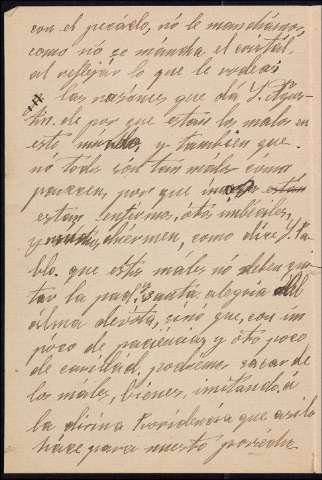 con el pecado, nó le manchámos,
como nó se máncha el cristál,
al reflejár lo que le rodea:
las rasónes que dá S. Agus-
tin de por que están los malos en
este mundo, y tambien que
nó todos són tan málos cómo
parecen, por que están
estan enfermos, ótos imbéciles,
y muchos duérmen, como dice S. Pa-
blo. que estos máles nó deben qui-
tar la paz y santa alegria del
alma devóta, sinó que, con un
póco de paciéncia, y oto póco
de caridád, podremos sacar de
los máles, biénes, imitándo á
la divina Providéncia que asi lo
háce para nuesto provécho